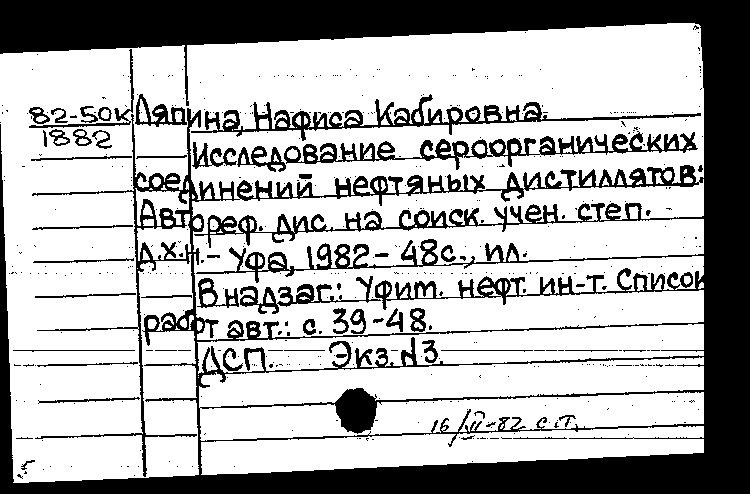 82-50к
1882
Ляпина, Нафиса Кабировна.
Исследование сероорганических
соединений нефтяных дистиллятов:
Автореф. дис. на соиск. учен. степ.
д.х.н. - Уфа, 1982 - 48 с., ил.
В надзаг.: Уфим. нефт. ин-т. Список
работ авт.: с. 39-48.
ДСП. Экз. N3.
16/VI-82 с.т.
5